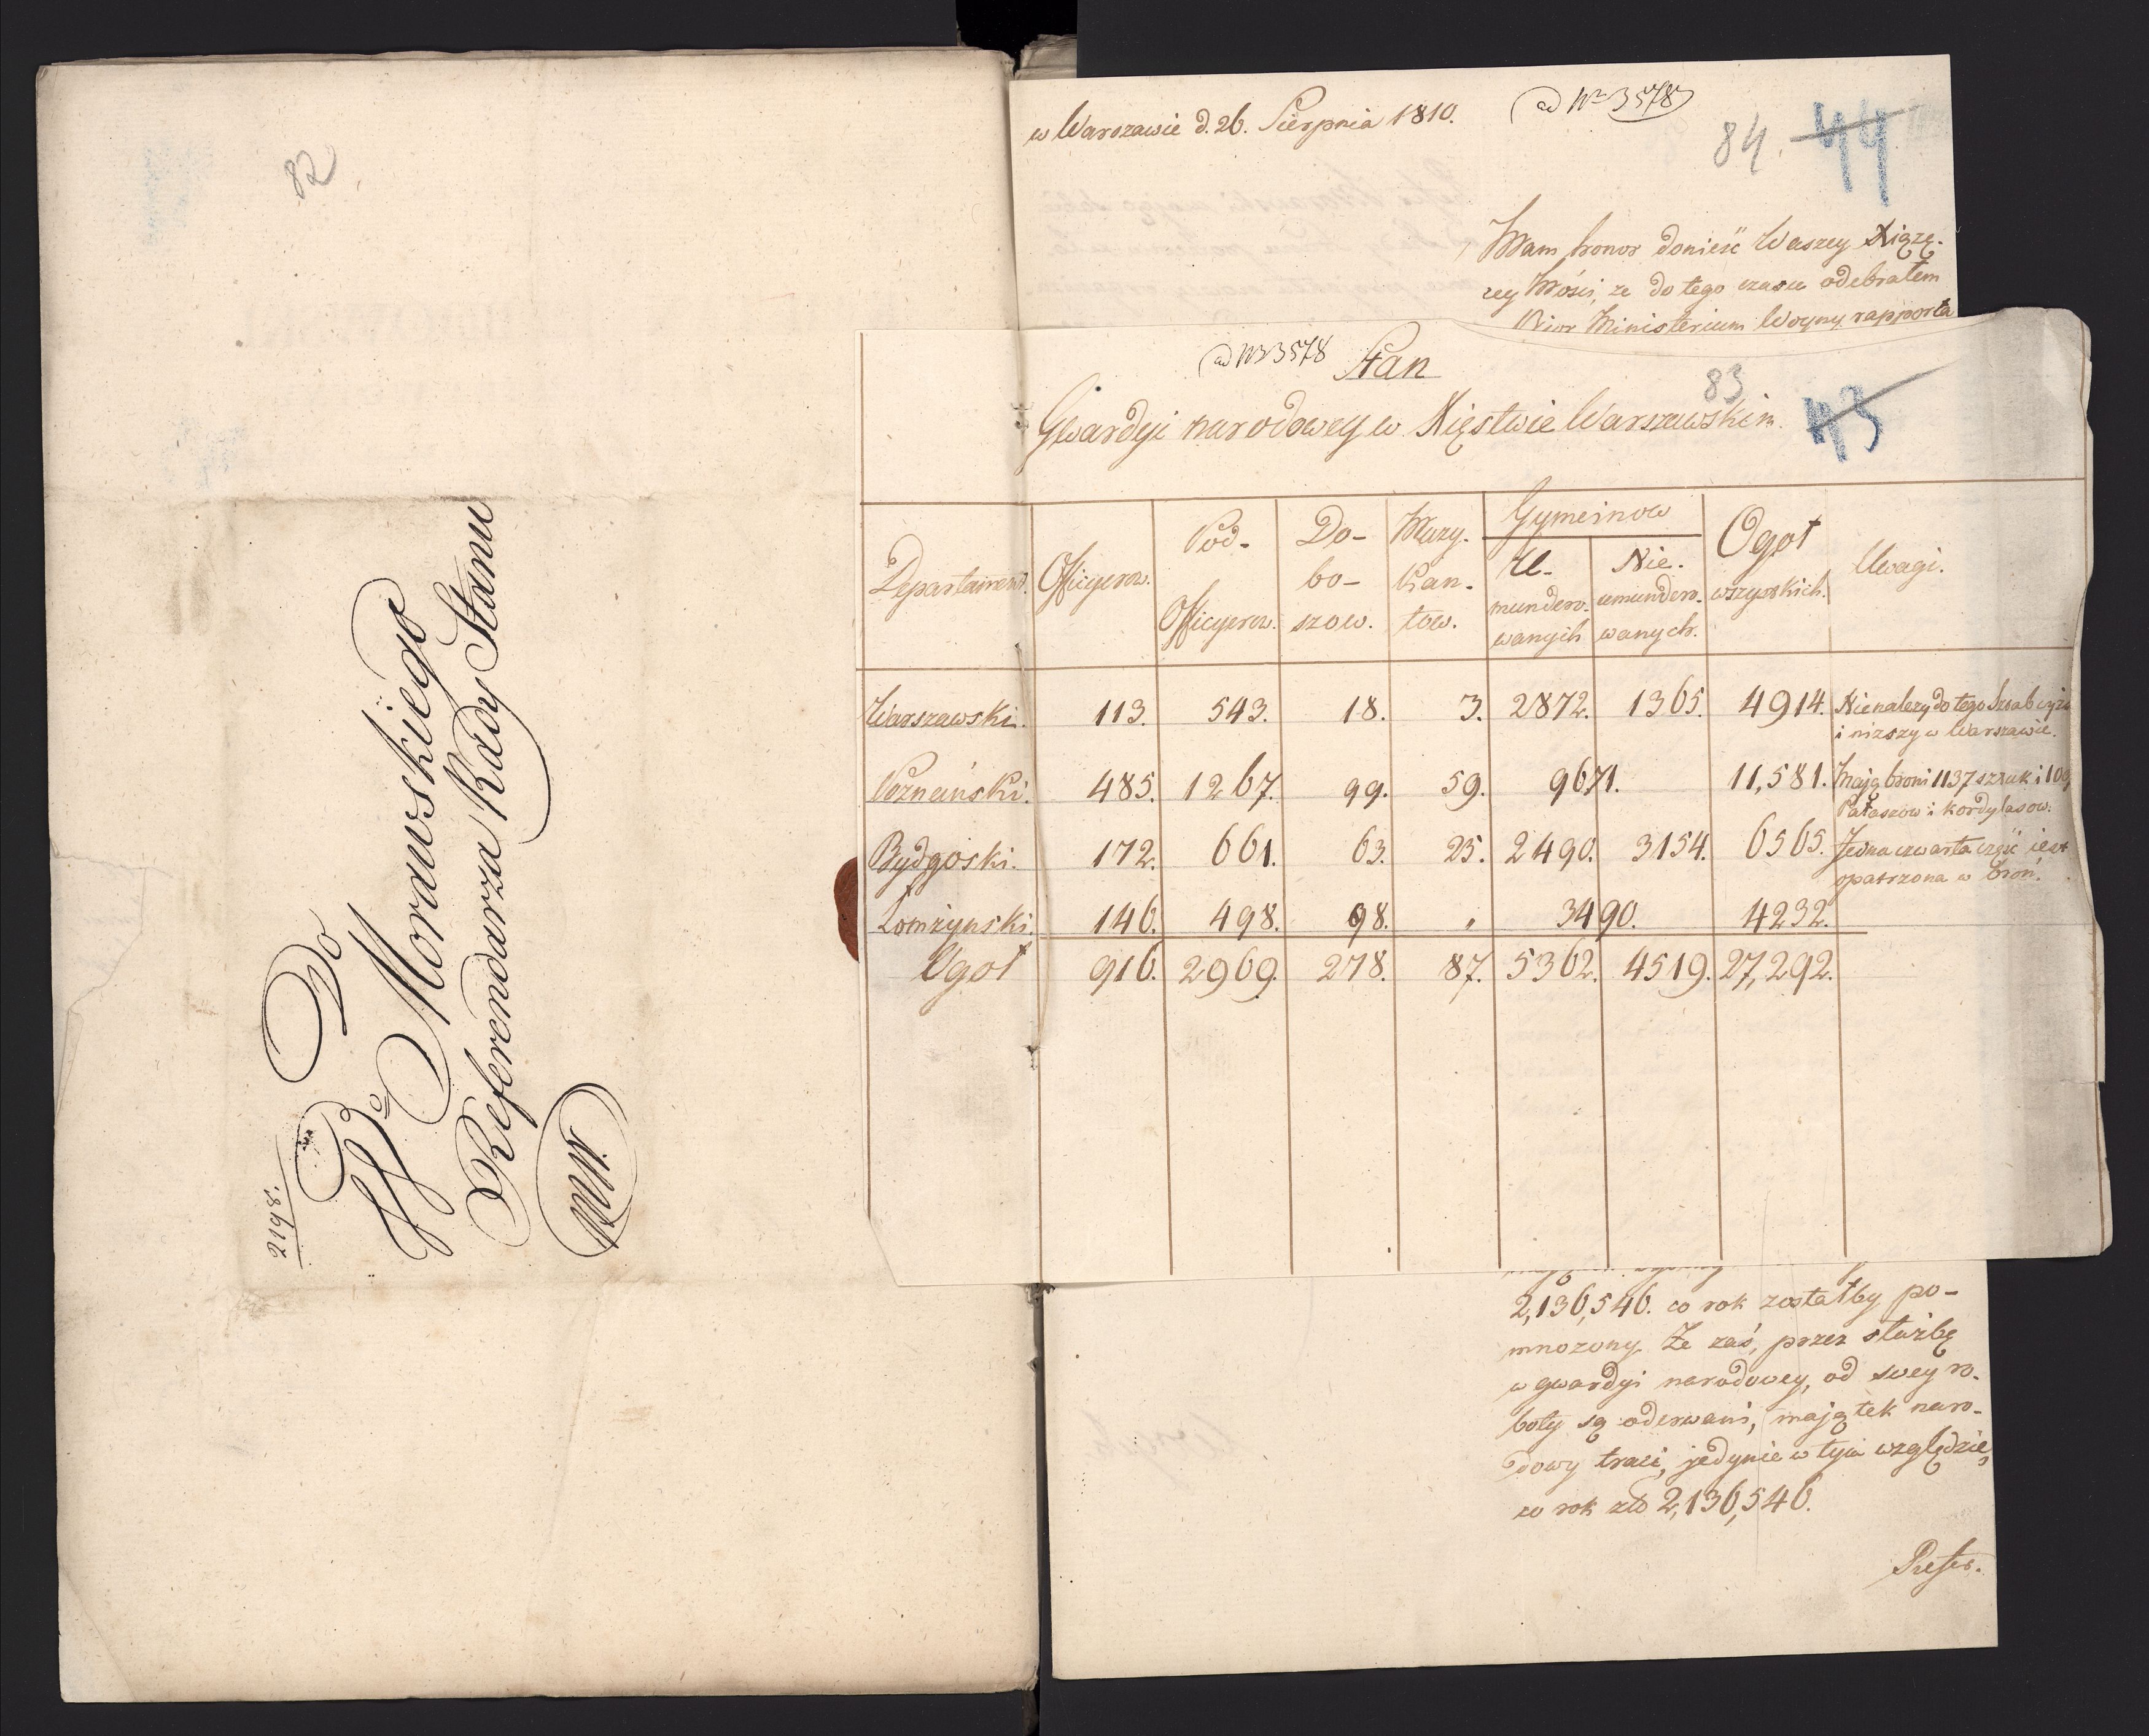 82
2198.
Do
W Morawskiego
Referendarza Rady Stanu
w Warszawie d. 26. Sierpnia 1810.
ad Nr 3578
84. 44
Mam honor donieść Waszey Xiążę-
cey Mości, że do tego czasu odebrałem
Biór Ministerium Woyny rapporta
ad Nr 3578
Stan
83
43
Gwardyi narodowey w Xięstwie Warszawskim.
Departament. Officyerow. Pod-Officyerow. Do-bo-szow. Muzy-kan-tow. Gymeinow U-mundero-wanych Nie-umundero-wanych. Ogoł wszystkich. Uwagi.
Warszawski. 113. 543. 18. 3. 2872. 1365. 4914. Nienależy do tego Sztab wyższ
i niższy w Warszawie.
Poznański. 485. 1267. 99. 59. 9671. 11,581. Mają broni 1137 sztuk i 100
Pałaszow i kordylasow.
Bydgoski. 172. 661. 63. 25. 2490. 3154. 6565. Jedna czwarta część iest
opatrzona w broń.
Łomżynski. 146. 498. 98. " 3490. 4232.
Ogoł 916. 2969. 278. 87. 5362. 4519. 27,292.
2,136,546. co rok zostałby po-
mnozony. Że zaś, przez służbę
w gwardyi narodowey, od swey ro-
boty są oderwani, majątek naro-
dowy traci, jedynie w tym względzie,
co rok zło 2,136,546.